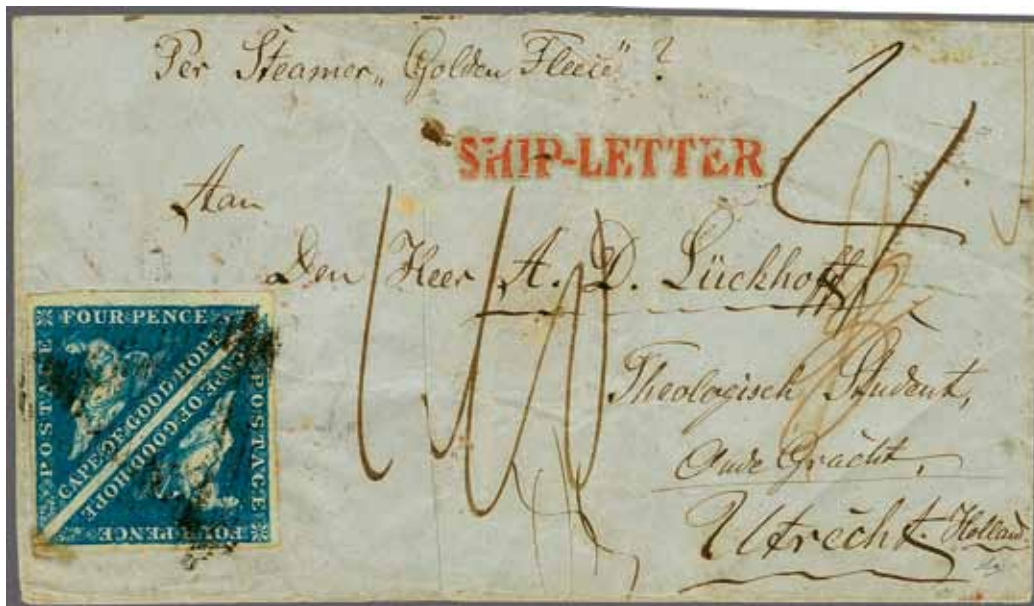 Per Steamer „Golden Fleece" ?
SHIP-LETTER
Aan
Den Heer A. D. Lückhoff
Theologisch Student,
Oude Gracht,
Utrecht. Holland
FOUR PENCE
POSTAGE
CAPE OF GOOD HOPE
CAPE OF GOOD HOPE
POSTAGE
FOUR PENCE